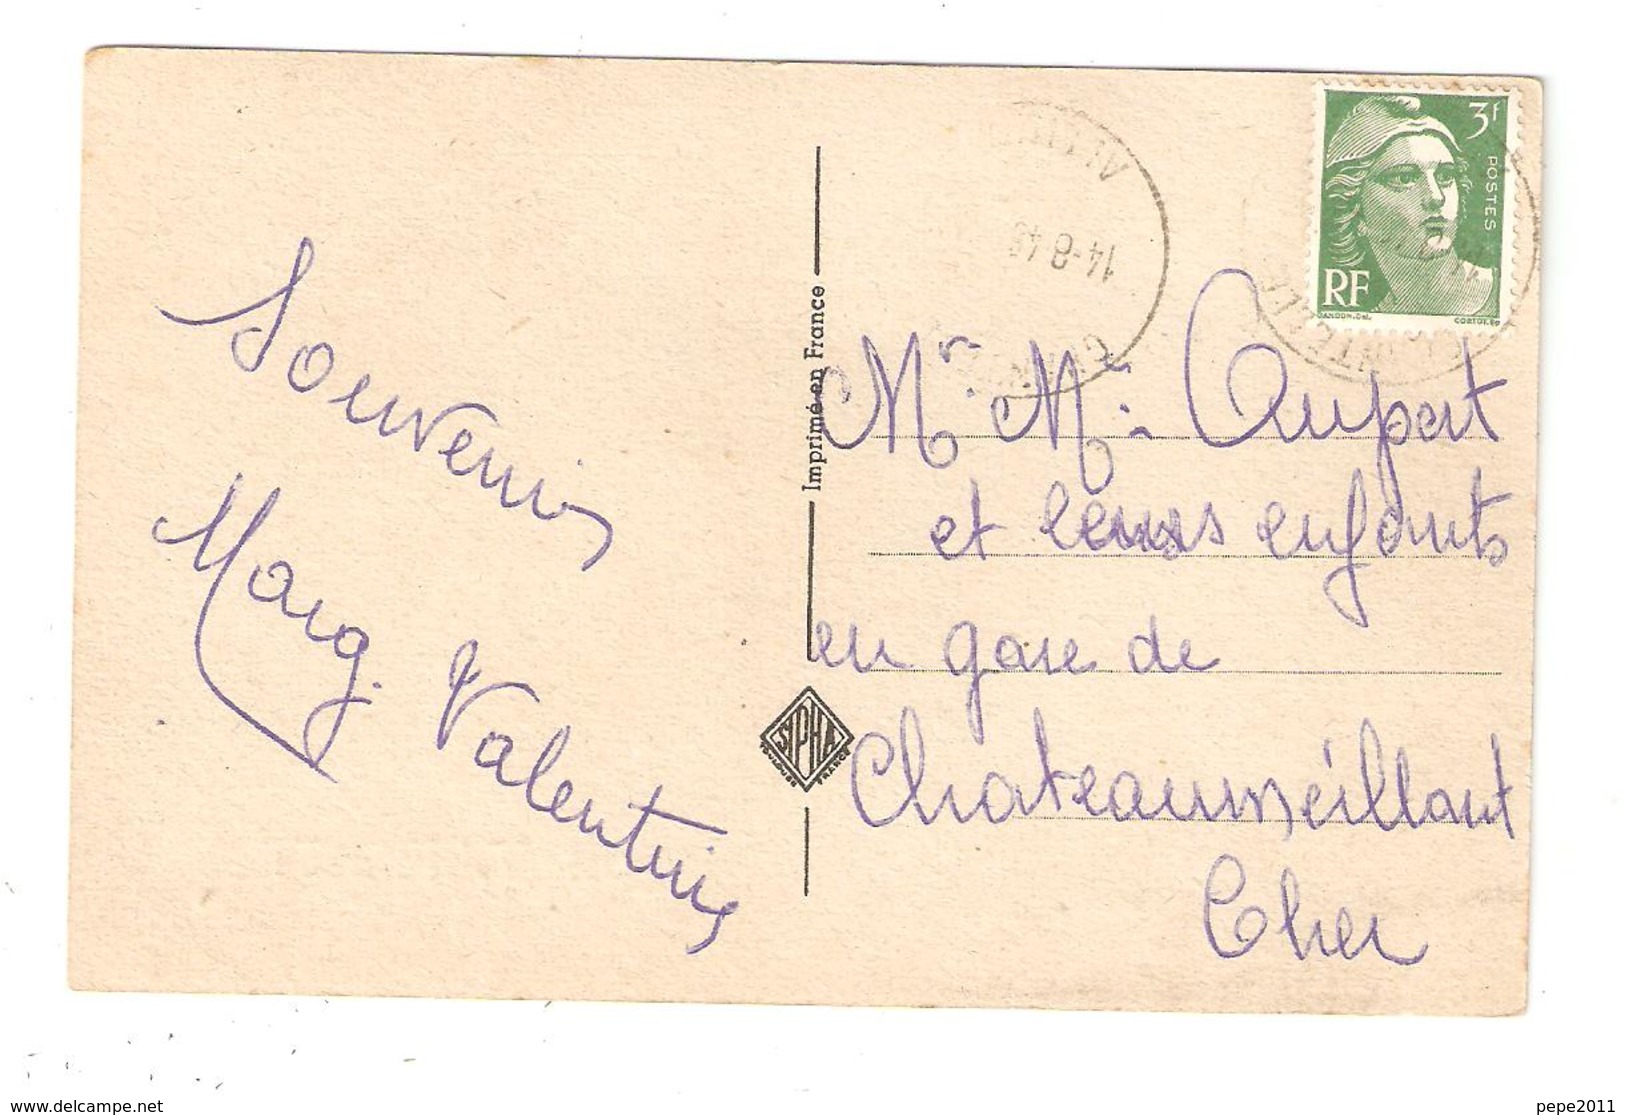 Souvenirs
Marg. Valentin
Imprimé en France
SYPHA
TOULOUSE FRANCE
14-8-48
3f
POSTES
RF
GANDON.Del.
CORTOT.Sp
Mr. Me. Aupert
et leurs enfants
en gare de
Chateaumeillant
Cher
www.delcampe.net
pepe2011